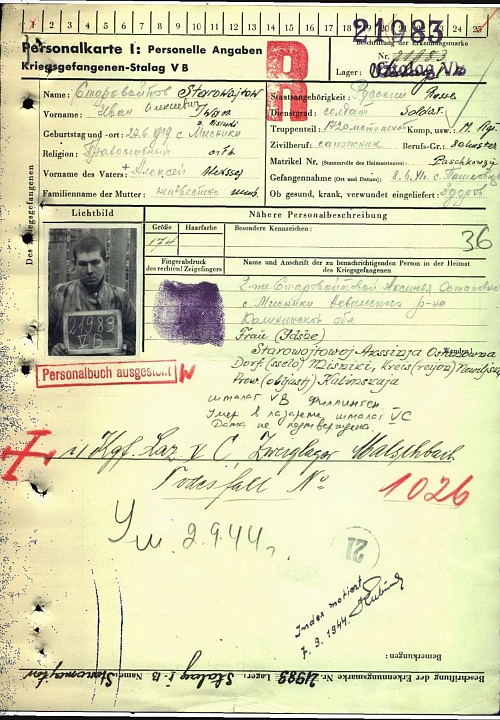 1 2 3 4 5 6 7 8 9 10 11 12 13 14 15 16 17 18 19 20 21 22 23 24 25
21983
Personalkarte I: Personelle Angaben
Beschriftung der Erkennungsmarke
Kriegsgefangenen-Stalag V B
Nr. 21983
Lager: Stalag V B
Name: Старовойтов Starowojtow
Staatsangehörigkeit: Русский Russe
Vorname: Иван Алексеевич Iwan
Dienstgrad: солдат Soldat
Geburtstag und -ort: 22.6.1919 с. Мисники
Truppenteil: Komp. usw.:
Religion: Православный orth.
Zivilberuf: сапожник Berufs-Gr.: Schuster
Matrikel Nr. (Stammrolle des Heimatstaates)
Vorname des Vaters: Алексей Alexsej
Gefangennahme (Ort und Datum): 8.6.41.
Familienname der Mutter: неизвестно
Ob gesund, krank, verwundet eingeliefert: Здоров
Des Kriegsgefangenen
Lichtbild
Nähere Personalbeschreibung
Größe
Haarfarbe
Besondere Kennzeichen:
174
36
Fingerabdruck
des rechten! Zeigefingers
Name und Anschrift der zu benachrichtigenden Person in der Heimat
des Kriegsgefangenen
21983
V B
г-же Старовойтовой Аксинья Остаповна
с. Мисники Невельского р-на
Калининской обл
Frau
Starowojtowoj Akssinja
Dorf (sselo) Missniki, kreis (rayon) Newelskij
Prov. (objastj) Kalinskaja
Personalbuch ausgestellt
шталаг VB Филлинген.
Умер в лазарете шталаг VC
Дата не подтверждена.
Kgf. Laz V C, Zweiglager
Todesfall No 1026
Ум. 2.9.44 г.
21
Index notiert
7.9.1944.
Bemerkungen:
Beschriftung der Erkennungsmarke Nr. 21983 Lager: Stalag V B Name: Starowojtow